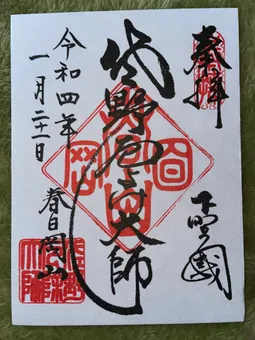 奉拝
下野國
佐野厄よけ大師
令和四年
一月二十一日
春日岡山